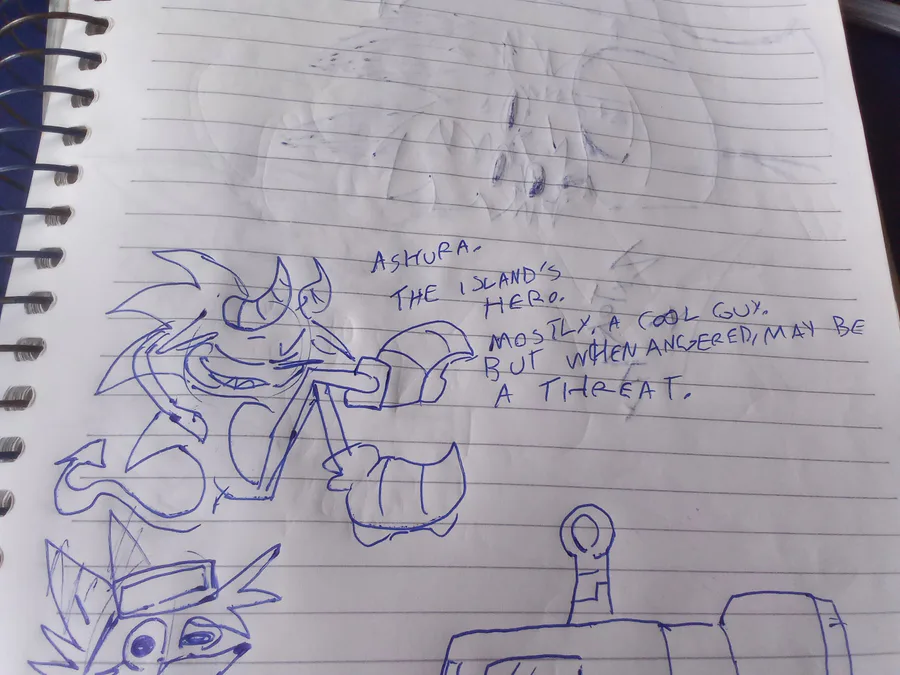 ASHURA.
THE ISLAND'S
HERO.
MOSTLY, A COOL GUY.
BUT WHEN ANGERED, MAY BE
A THREAT.